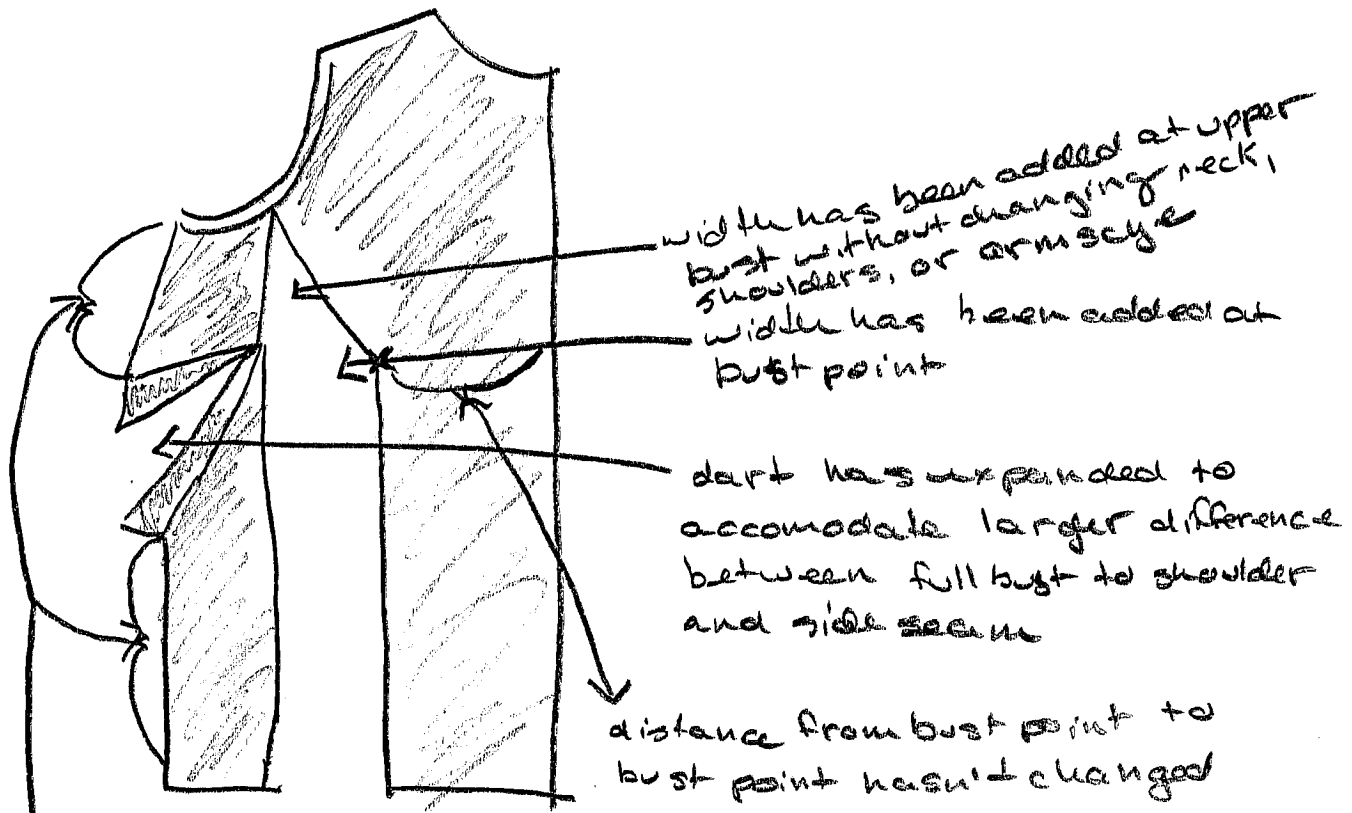 width has been added at upper
bust without changing neck,
shoulders, or armscye
width has been added at
bust point
dart has expanded to
accomodate larger difference
between full bust to shoulder
and side seam
distance from bust point to
bust point hasn't changed